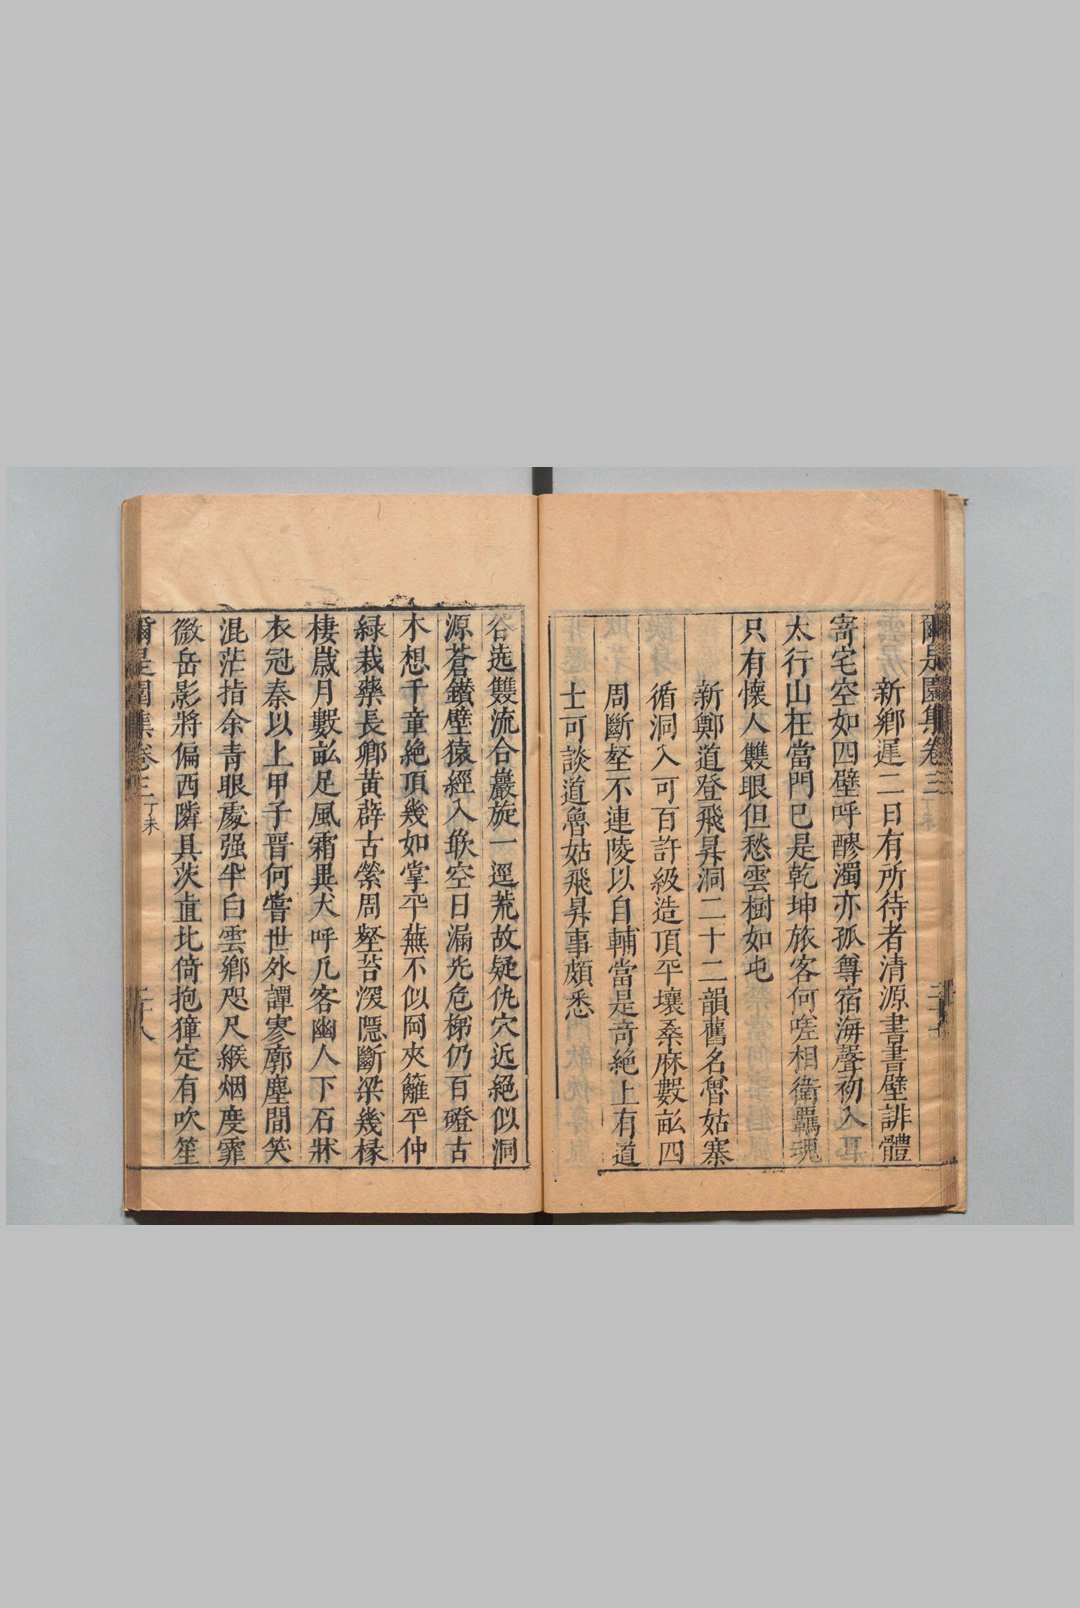 新鄉遲二日有所待者清源書書壁誹體
寄宅空如四壁呼醪濁亦孤尊宿海聲初入耳
太行山在當門巳是乾坤旅客何嗟相衛羈魂
只有懷人雙眼但愁雲樹如屯
新鄭道登飛昇洞二十二韻舊名魯姑寨
循洞入可百許級造頂平壤桑麻數畝四
周斷壑不連陵以自輔當是奇絕上有道
士可談道魯姑飛昇事頗悉
谷选雙流合巖旋一逕荒故疑仇穴近絕似洞
源蒼鑽壁猿經入欹空日漏光危梯仍百磴古
木想千章絕頂幾如掌平蕪不似岡夾籬平仲
緑栽藥長卿黃薜古縈周壑苔深隱斷梁幾椽
棲歲月數畝足風霜異犬呼凡客幽人下石牀
衣冠秦以上甲子晋何嘗世外譚寥廓塵間笑
混茫指余青眼處强半白雲鄉咫尺緱烟度霏
微岳影將偏西隣具茨直比倚抱獐定有吹笙
爾是園集卷三 丁未 二十八